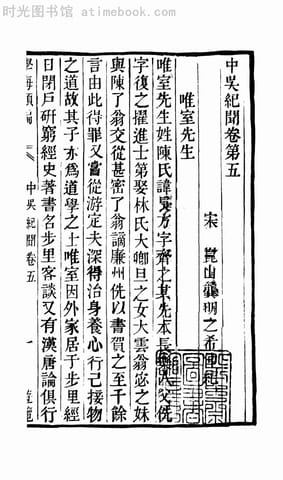 时光图书馆 - atimebook.com
中吳紀聞卷第五
宋 崑山龔明之希仲
唯室先生
唯室先生姓陳氏諱長方字齊之其先本長樂人父侁
字復之擢進士第娶林氏大卿旦之女大雲翁宓之妹
與陳了翁交從甚密了翁謫廉州侁以書賀之至千餘
言由此得罪又嘗從游定夫深得治身養心行己接物
之道故其子亦為道學之士唯室因外家居于步里經
日閉戶研窮經史著書名步里客談又有漢唐論俱行
學海類編
中吳紀聞卷五
一